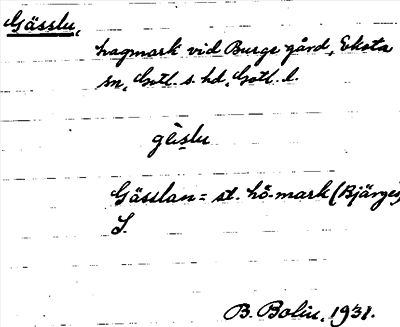 Gässlu,
hagmark vid Burge gård, Eksta
sn, Gotl. s. hd, Gotl. l.
gèi̯slu
Gässlan = st. hö-mark (Bjärges)
L.
B. Bolin. 1931.